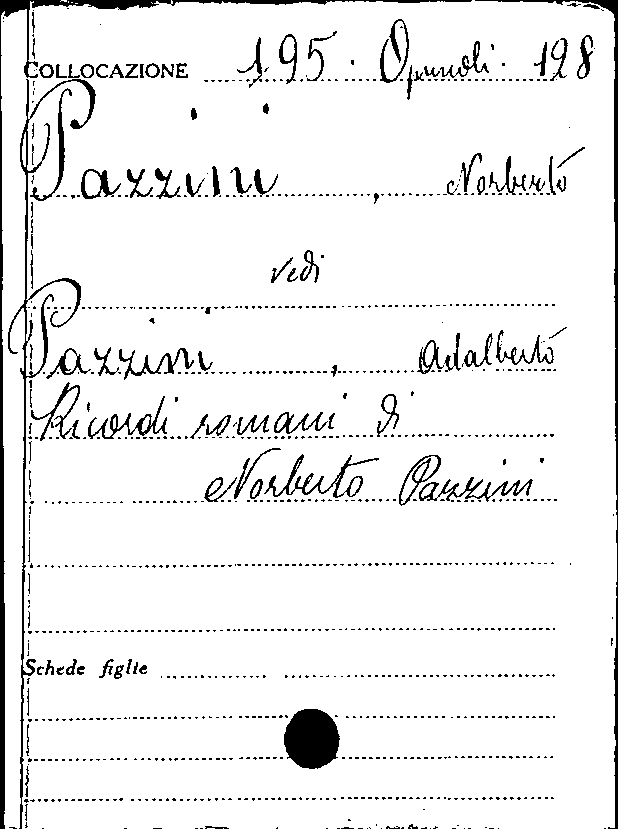 COLLOCAZIONE 195. Opuscoli. 128
Pazzini, Norberto
vedi
Pazzini, Adalberto
Ricordi romani di
Norberto Pazzini
Schede figlie